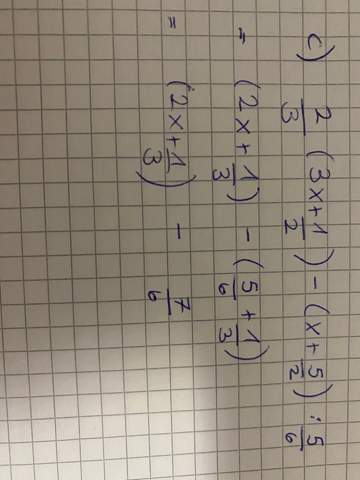 c) 2/3 (3x + 1/2) - (x + 5/2) : 5/6
= (2x + 1/3) - (5/6 + 1/3)
= (2x + 1/3) - 7/6